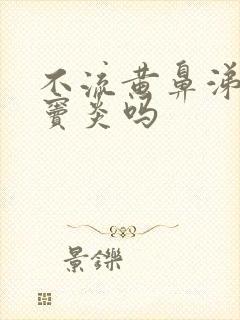 不流黄鼻涕
窦炎吗
景鑠